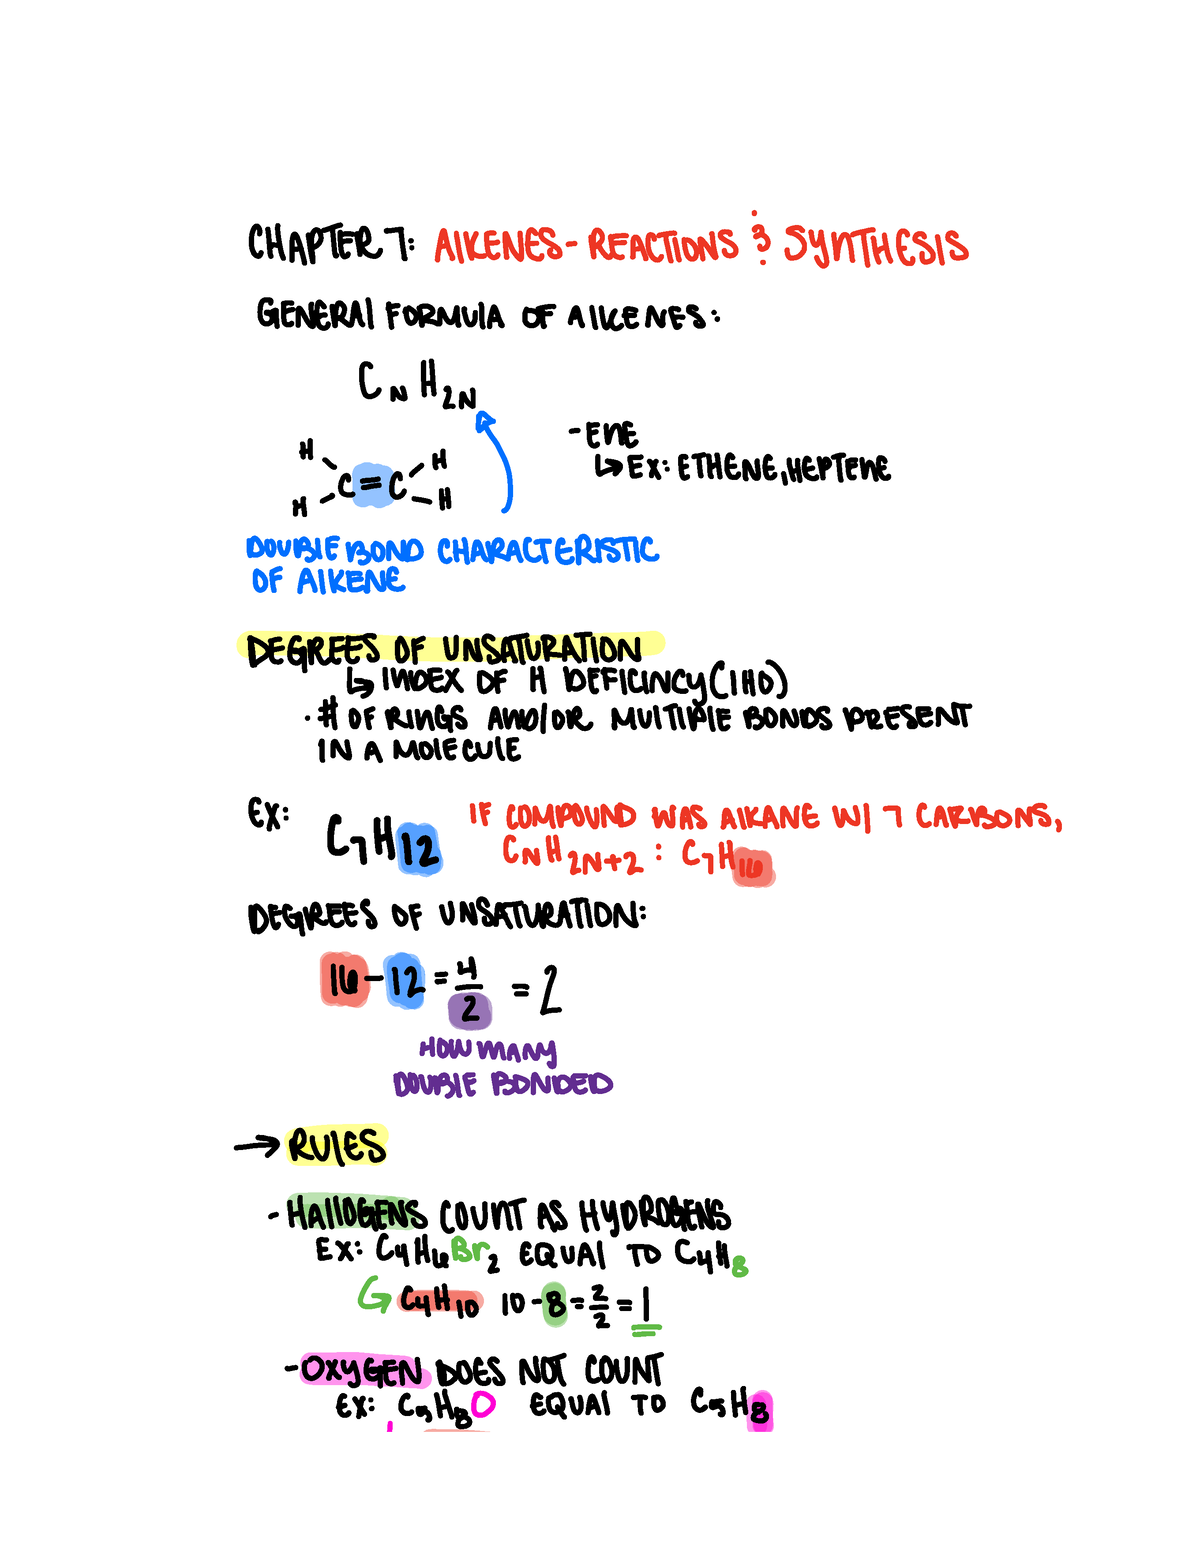 CHAPTER 7: AlKENES - REACTIONS & SYNTHESIS
GENERAl FORMUlA OF AlKENES:
C N H 2N
- ENE
↳ EX: ETHENE, HEPTENE
H H
C = C
H H
DOUBlE BOND CHARACTERISTIC
OF AlKENE
DEGREES OF UNSATURATION
↳ INDEX OF H DEFICINCY (IHD)
· # OF RINGS AND/OR MULTIPlE BONDS PRESENT
IN A MOlECUlE
EX: C7H12 IF COMPOUND WAS AlKANE W/ 7 CARBONS,
CNH2N+2 : C7H16
DEGREES OF UNSATURATION:
16 - 12 = 4/2 = 2
HOW MANY
DOUBlE BONDED
→ RUlES
- HAllOGENS COUNT AS HYDROGENS
EX: C4H6Br2 EQUAl TO C4H8
↳ C4H10 10 - 8 = 2/2 = 1
- OXYGEN DOES NOT COUNT
EX: C5H8O EQUAl TO C5H8